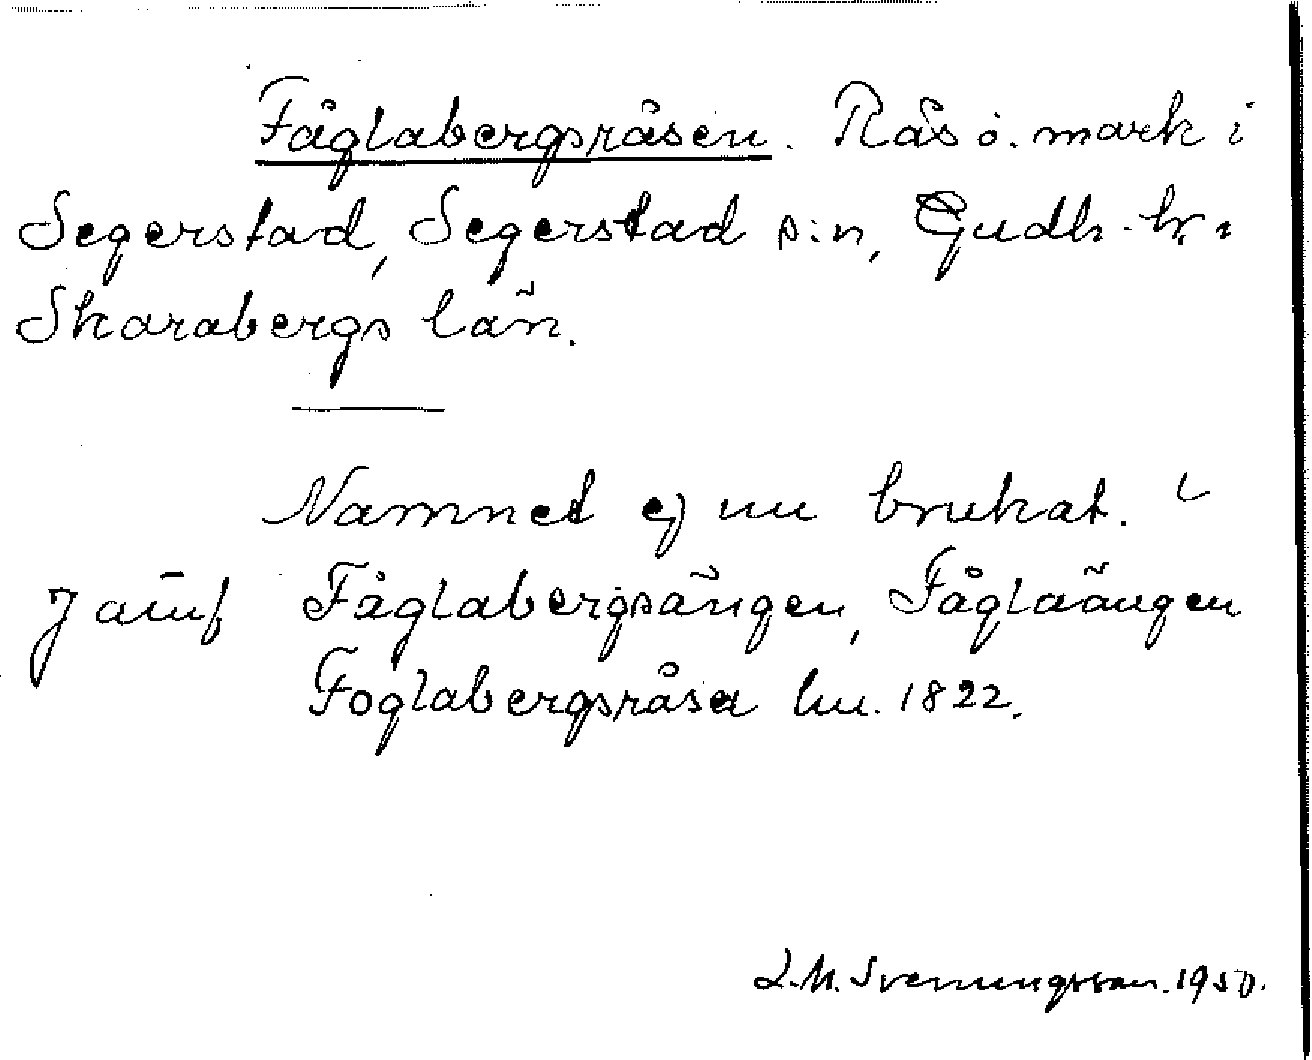 Fåglabergsråsen. Rås o. mark i
Segerstad, Segerstad s:n, Gudh. hr.
Skarabergs län.
Namnet ej nu brukat.
Jämf Fåglabergsängen, Fåglaängen
Foglabergsråsa hu. 1822.
L.M. Svenungsson. 1950.